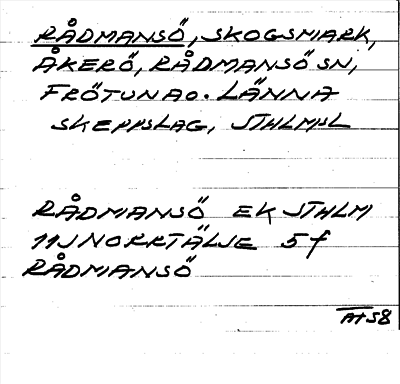 RÅDMANSÖ, SKOGSMARK,
ÅKERÖ, RÅDMANSÖ SN,
FRÖTUNA O. LÄNNA
SKEPPSLAG, STHLMSL
RÅDMANSÖ EK STHLM
11J NORRTÄLJE 5f
RÅDMANSÖ
AH58